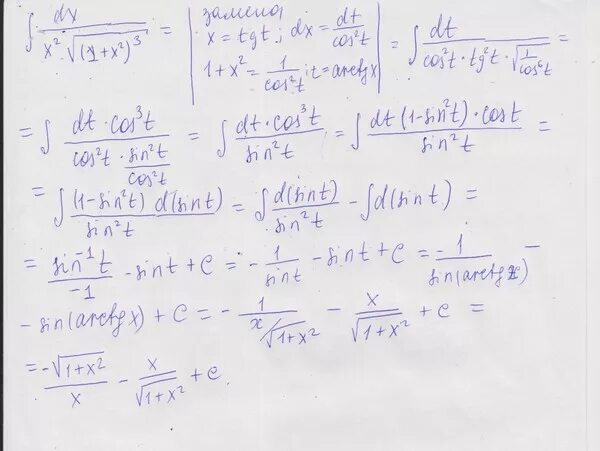 ∫ dx / (x² · √((1+x²)³)) = | замена x = tg t ; dx = dt/cos²t ; 1+x² = 1/cos²t ; t = arctg x | = ∫ dt / (cos²t · tg²t · √(1/cos⁶t)) =
= ∫ dt · cos³t / (cos²t · sin²t/cos²t) = ∫ dt · cos³t / sin²t = ∫ dt (1-sin²t) · cos t / sin²t =
= ∫ (1-sin²t) d(sin t) / sin²t = ∫ d(sin t) / sin²t - ∫ d(sin t) =
= sin⁻¹t / -1 - sin t + C = - 1/sin t - sin t + C = - 1/sin(arctg x) -
- sin(arctg x) + C = - 1/(x/√(1+x²)) - x/√(1+x²) + C =
= -√(1+x²)/x - x/√(1+x²) + C.